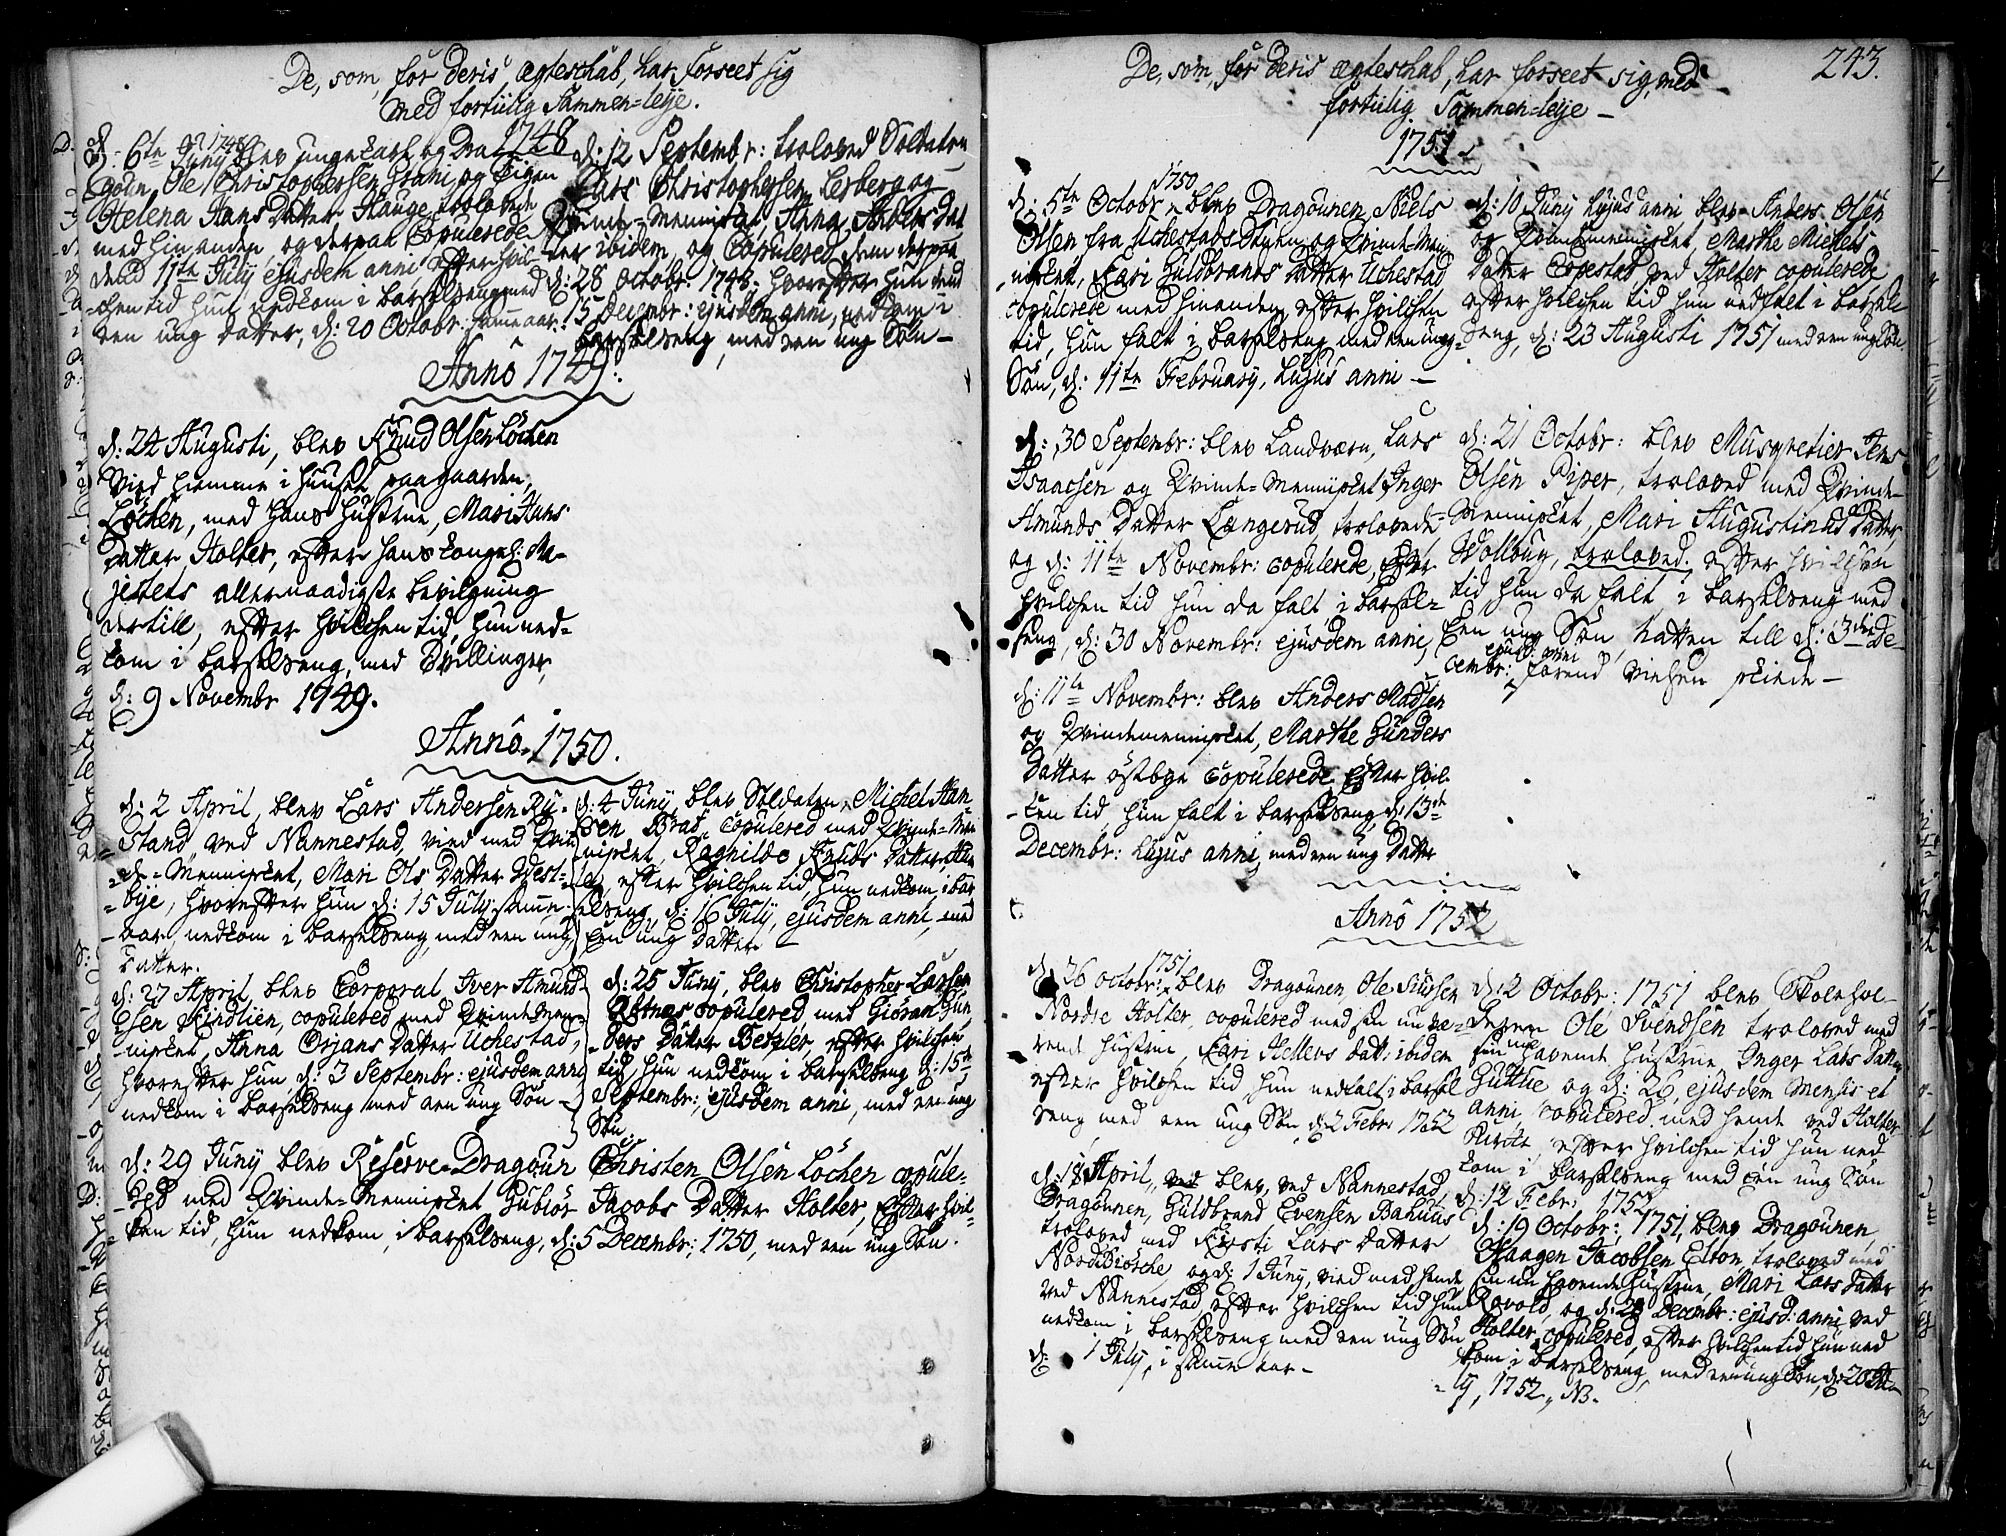 De, som, för deris ægteschab, har forseet sig
med fortiilig Sammen=leje.
1748
d: 6te Junÿ blev ungekarl og Dra-
goun, Ole Christophersen Grani og Pigen
Helena Hans Datter Hauge, trolovede
med hinanden, og derpaa Copulerede
dend 11te Julÿ ejusdem anni, efter hvil-
chen tid hun nedkom i barselseng med
een ung datter, d: 20 Octobr: samme aar.
d: 12 Septembr: troloved Soldaten
Lars Christophersen Lerberg og
Qvinde-Mennisket, Anna Anders Dat-
ter ibidem, og Copulered dem derpaa
d: 28 Octobr: 1748, hvorefter hun dend
15 Decembr: ejusdem anni, nedkom i
barselseng, med een ung Sön-
Anno 1749.
d: 24 Augusti, blev Knud Olsen Löchen
Vied hiemme i huuset paa gaarden,
Löchen, med hans hustrue, Mari Hans
Datter Holter, efter hans kongel: Ma-
jestets allernaadigste bevilgning
dertill, efter hvilchen tid, hun ned-
kom i barselseng, med Tvillinger,
d: 9 Novembr 1749.
Anno 1750.
d: 2 April, blev Lars Andersen Ru-
stand ved Nannestad, vied med Qvin-
de-Mennisket, Mari Ols Datter West-
bye, hvorefter hun d: 15 Julÿ samme
aar, nedkom i barselseng, med een ung
Datter.
d: 4 Junÿ, blev Soldaten, Michel Han-
sen Braf, Copulered med Qvinde-Men
nisket, Ragnilde Knuds Datter,
efter hvilchen tid, hun nedkom, i bar
selseng, d: 16 Julÿ, ejusdem anni, med
Een ung Datter
d: 27 April, blev Corporal Iver Amund-
sen Kindlien, copulered med Qvinde Men-
nisket, Anna Örjans Datter Uchestad,
hvorefter hun, d: 3 Septembr: ejusdem anni
nedkom i barselseng med een ung Sön-
d: 25 Junÿ, blev Christopher Larsen
copulered med Giöran Gun
ders Datter Berger, efter hvilchen
tid, hun nedkom i barselseng d: 15de
Septembr: ejusdem anni, med een ung
Sön.
d: 29 Junÿ blev Reserve-Dragoun Christen Olsen Löchen copule-
red med Qvinde-Mennisket Gubiör Jacobs Datter Holter, Efter hvil-
ken tid, hun nedkom, i barselseng, d: 5 Decembr: 1750, med een ung Sön.
De, som, för deris ægteschab, har forseet sig, med
fortiilig Sammen-leje-
243.
1751
d: 5te Octobr 1750 blev Dragounen Niels
Olsen fra Uchestads Stuen og Qvinde-Men-
nisket, Kari Guldbrands Datter Uchestad
copulerede med hinanden, efter hvilchen
tid, hun falt i barselseng med een ung
Sön, d: 11te Februarÿ, hujus anni-
d: 10 Junÿ hujus anni blev Anders Olsen
og Qvindemennisket, Marthe Michels
Datter Copestad, ved Holter copulerede,
efter hvilchen tid hun nedfalt i barsel-
seng, d: 23 Augusti 1751 med een ung Sön.
d: 30 Septembr: blev Landværn, Lars
Isaacsen og Qvinde-Mennisket Inger
Amunds Datter Længerud, trolovede,
og d: 11te Novembr: copulerede, Efter
hvilchen tid hun da falt i barsel-
seng, d: 30 Novembr: ejusdem anni,
d: 21 Octobr: blev Musqvetier Jens
Olsen Piper, troloved med Qvinde-
Mennisket, Mari Augustinus Datter,
Wollbuy, troloved, efter hvilchen
tid hun da falt i barselseng med
Een ung Sön, natten till d: 3die De-
cembr: ejusd: anni, forend vielsen skiede-
d: 11te Novembr: blev Anders Madsen
og Qvindemennisket, Marthe Gunders
Datter östbye copulerede, Efter hvil-
ken tid, hun falt i barselseng, d: 13de
Decembr: hujus anni, med een ung Datter
Anno 1752
d: 26 octobr: 1751 blev Dragounen Ole Siversen
Nordre Holter, copulered med sin nu væ-
rende hustrue, Kari Hellevs datt: ibidem
efter hvilchen tid, hun nedfalt i barsel
seng med een ung Sön, d: 2 Febr: 1752
d: 2 Octobr: 1751 blev Skolehol-
deren Ole Svendsen troloved med
sin nu havende hustrue, Inger Lars Datter
Huttue og d: 26, ejusdem Mensis et
anni, copulered med hende ved Holter
Kirke, efter hvilchen tid hun ned
kom i barselseng med een ung Sön
d: 12 Febr: 1752
d: 18 April, blev, ved Nannestad,
Dragounen, Guldbrand Evensen Bahuus
troloved med Kirsti Lars Datter
Nordbiörche og d: 1 Junÿ, vied med hende
ved Nannestad, efter hvilchen tid hun
nedkom i barselseng med een ung Sön
d: 1 Julÿ, i samme aar-
d: 19 Octobr: 1751, blev Dragounen,
Haagen Jacobsen Elton, troloved med
sin nu havende hustrue, Mari Lars Datter
Rovold, og d: 28 Decembr: ejusd: anni ved
Holter, copulered, efter hvilchen tid hun ned
kom i barselseng, med een ung Sön, d: 20
1752, NB.